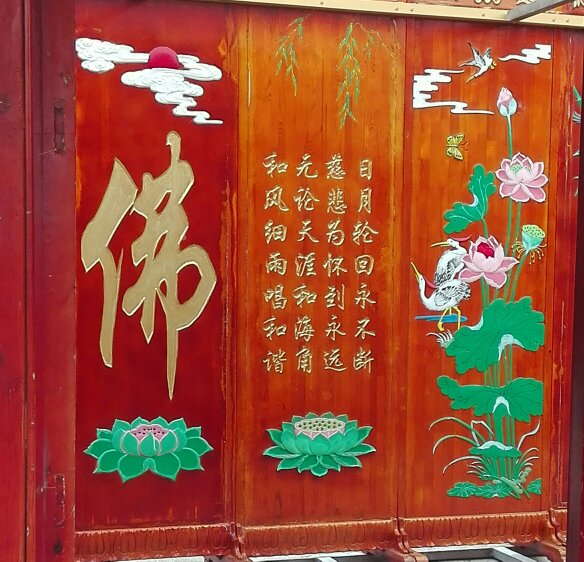 佛
日月轮回永不断
慈悲为怀到永远
无论天涯和海角
和风细雨唱和谐